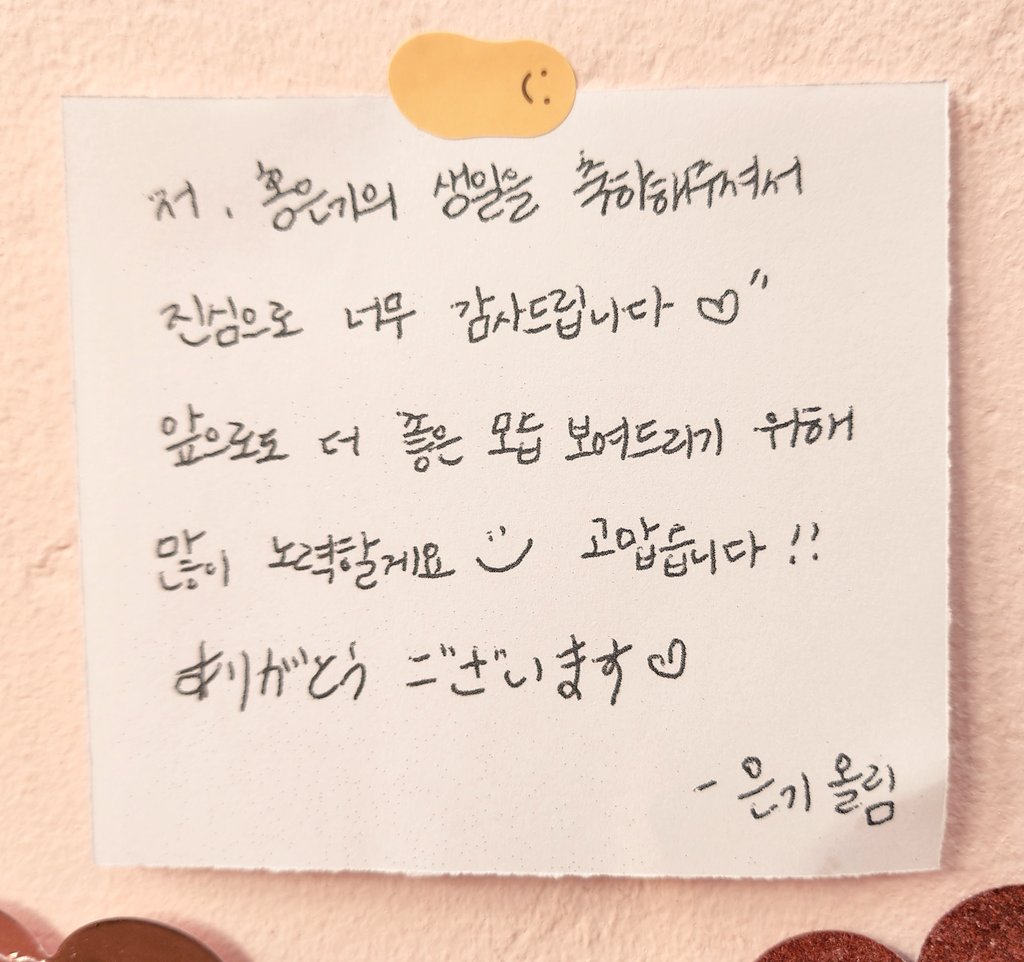 저, 홍은기의 생일을 축하해주셔서
진심으로 너무 감사드립니다 ♡"
앞으로도 더 좋은 모습 보여드리기 위해
많이 노력할게요 고맙습니다!!
ありがとう ございます♡
- 은기 올림